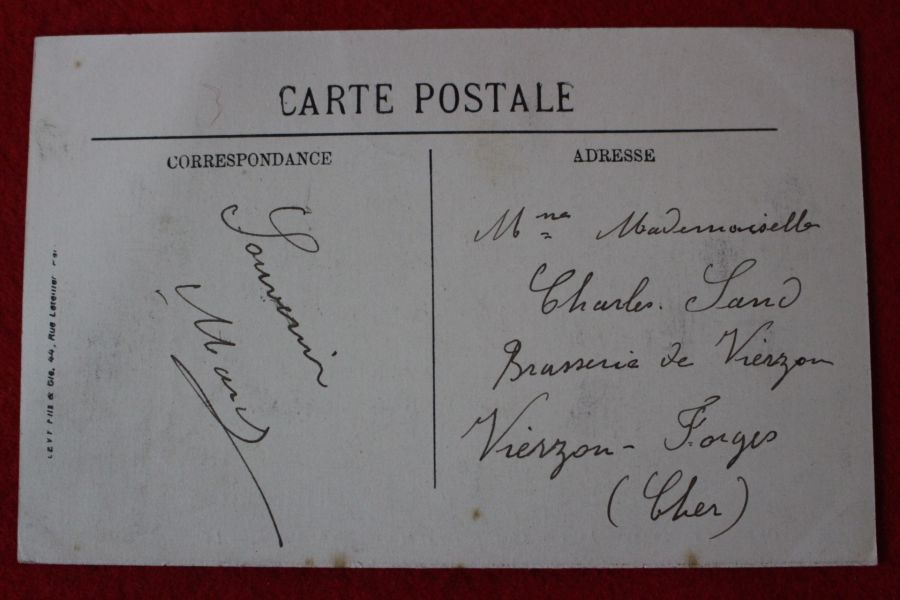 CARTE POSTALE
CORRESPONDANCE
ADRESSE
Souvenir
Mme Mademoiselle
Charles Sand
Brasserie de Vierzon
Vierzon-Forges
(Cher)
LEVY FILS & Cie, 44, Rue Letellier